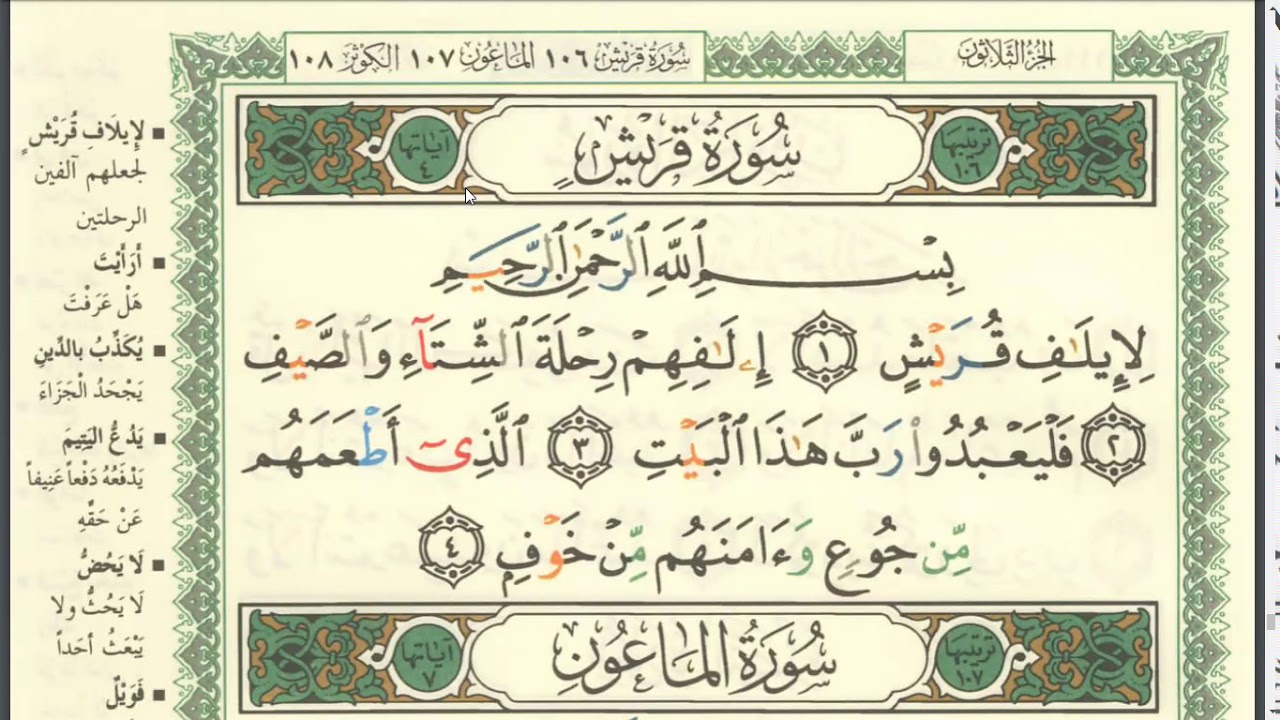 الجزء الثلاثون
سورة قريش ١٠٦ الماعون ١٠٧ الكوثر ١٠٨
ترتيبها ١٠٦
سُورَةُ قُرَيْشٍ
آياتها ٤
بِسْمِ ٱللَّهِ ٱلرَّحْمَٰنِ ٱلرَّحِيمِ
لِإِيلَٰفِ قُرَيْشٍ ١ إِۦلَٰفِهِمْ رِحْلَةَ ٱلشِّتَآءِ وَٱلصَّيْفِ
٢ فَلْيَعْبُدُوا۟ رَبَّ هَٰذَا ٱلْبَيْتِ ٣ ٱلَّذِىٓ أَطْعَمَهُم
مِّن جُوعٍ وَءَامَنَهُم مِّنْ خَوْفٍ ٤
ترتيبها ١٠٧
سُورَةُ الْمَاعُونِ
آياتها ٧
▪ لِإِيلَافِ قُرَيْشٍ
لجعلهم آلفين
الرحلتين
▪ أَرَأَيْتَ
هَلْ عَرَفْتَ
▪ يُكَذِّبُ بالدِّينِ
يَجْحَدُ الْجَزَاءَ
▪ يَدُعُّ اليَتِيمَ
يَدْفَعُهُ دَفْعاً عَنِيفاً
عَنْ حَقِّهِ
▪ لَا يَحُضُّ
لَا يَحُثُّ ولا
يَبْعَثُ أحَداً
▪ فَوَيْلٌ